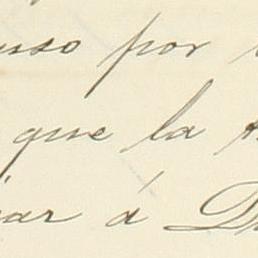 uso por
que la
ar á D